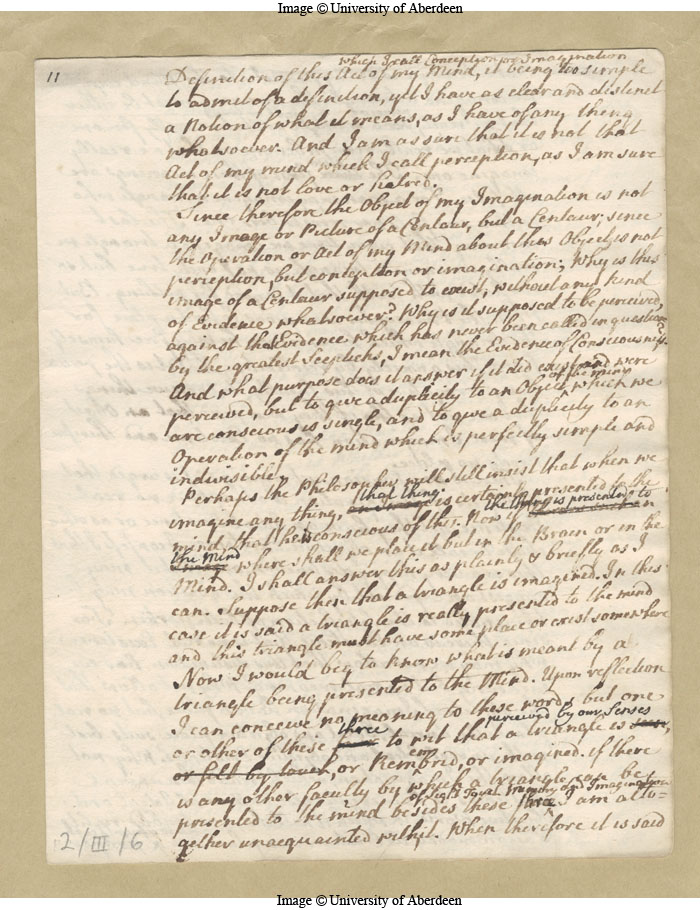 Image © University of Aberdeen
11
which I call Conception or Imagination
Definition of this Act of my Mind, it being too simple
to admit of a definition, yet I have as clear and distinct
a Notion of what it means, as I have of any thing
whatsoever. And I am as sure that it is not that
Act of my mind which I call perception, as I am sure
that it is not love or hatred.
Since therefore the Object of my Imagination is not
any Image or Picture of a Centaur, but a Centaur; since
the Operation or Act of my Mind about this Object is not
perception, but conception or imagination; Why is this
image of a Centaur supposed to exist, without any kind
of Evidence whatsoever? Why is it supposed to be perceived,
against that Evidence which has never been called in question
by the greatest Scepticks, I mean the Evidence of Consciousness?
And what purpose does it answer if it did exist and were
of the mind
perceived, but to give a duplicity to an Object which we
are conscious is single, and to give a duplicity to an
Operation of the mind which is perfectly simple and
indivisible.
Perhaps the Philosopher will still insist that when we
that thing
imagine any thing, is certainly presented to the
the thing is presented to
mind, that he is conscious of this. Now if
the Mind
where shall we place it but in the Brain or in the
Mind. I shall answer this as plainly & briefly as I
can. Suppose then that a triangle is imagined. In this
case it is said a triangle is really presented to the mind
and this triangle must have some place or exist somewhere
Now I would beg to know what is meant by a
triangle being presented to the Mind. Upon reflection
I can conceive no meaning to these words but one
three perceived by our Senses
or other of these to wit that a triangle is
or felt by touch, or Remembrid, or imagined. if there
is any other faculty by which a triangle can be
of Sight Touch Memory and Imagination
presented to the mind besides these I am alto=
gether unacquainted with it. When therefore it is said
2/III/6
Image © University of Aberdeen